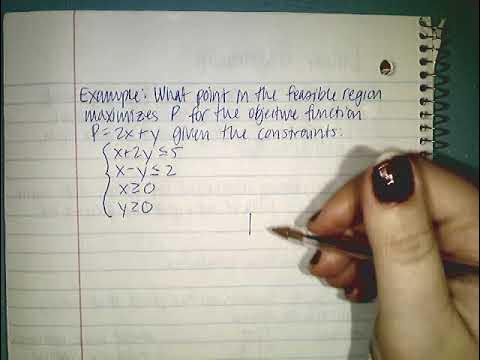 Example: What point in the feasible region
maximizes P for the objective function
P = 2x + y given the constraints:
x + 2y ≤ 5
x - y ≤ 2
x ≥ 0
y ≥ 0